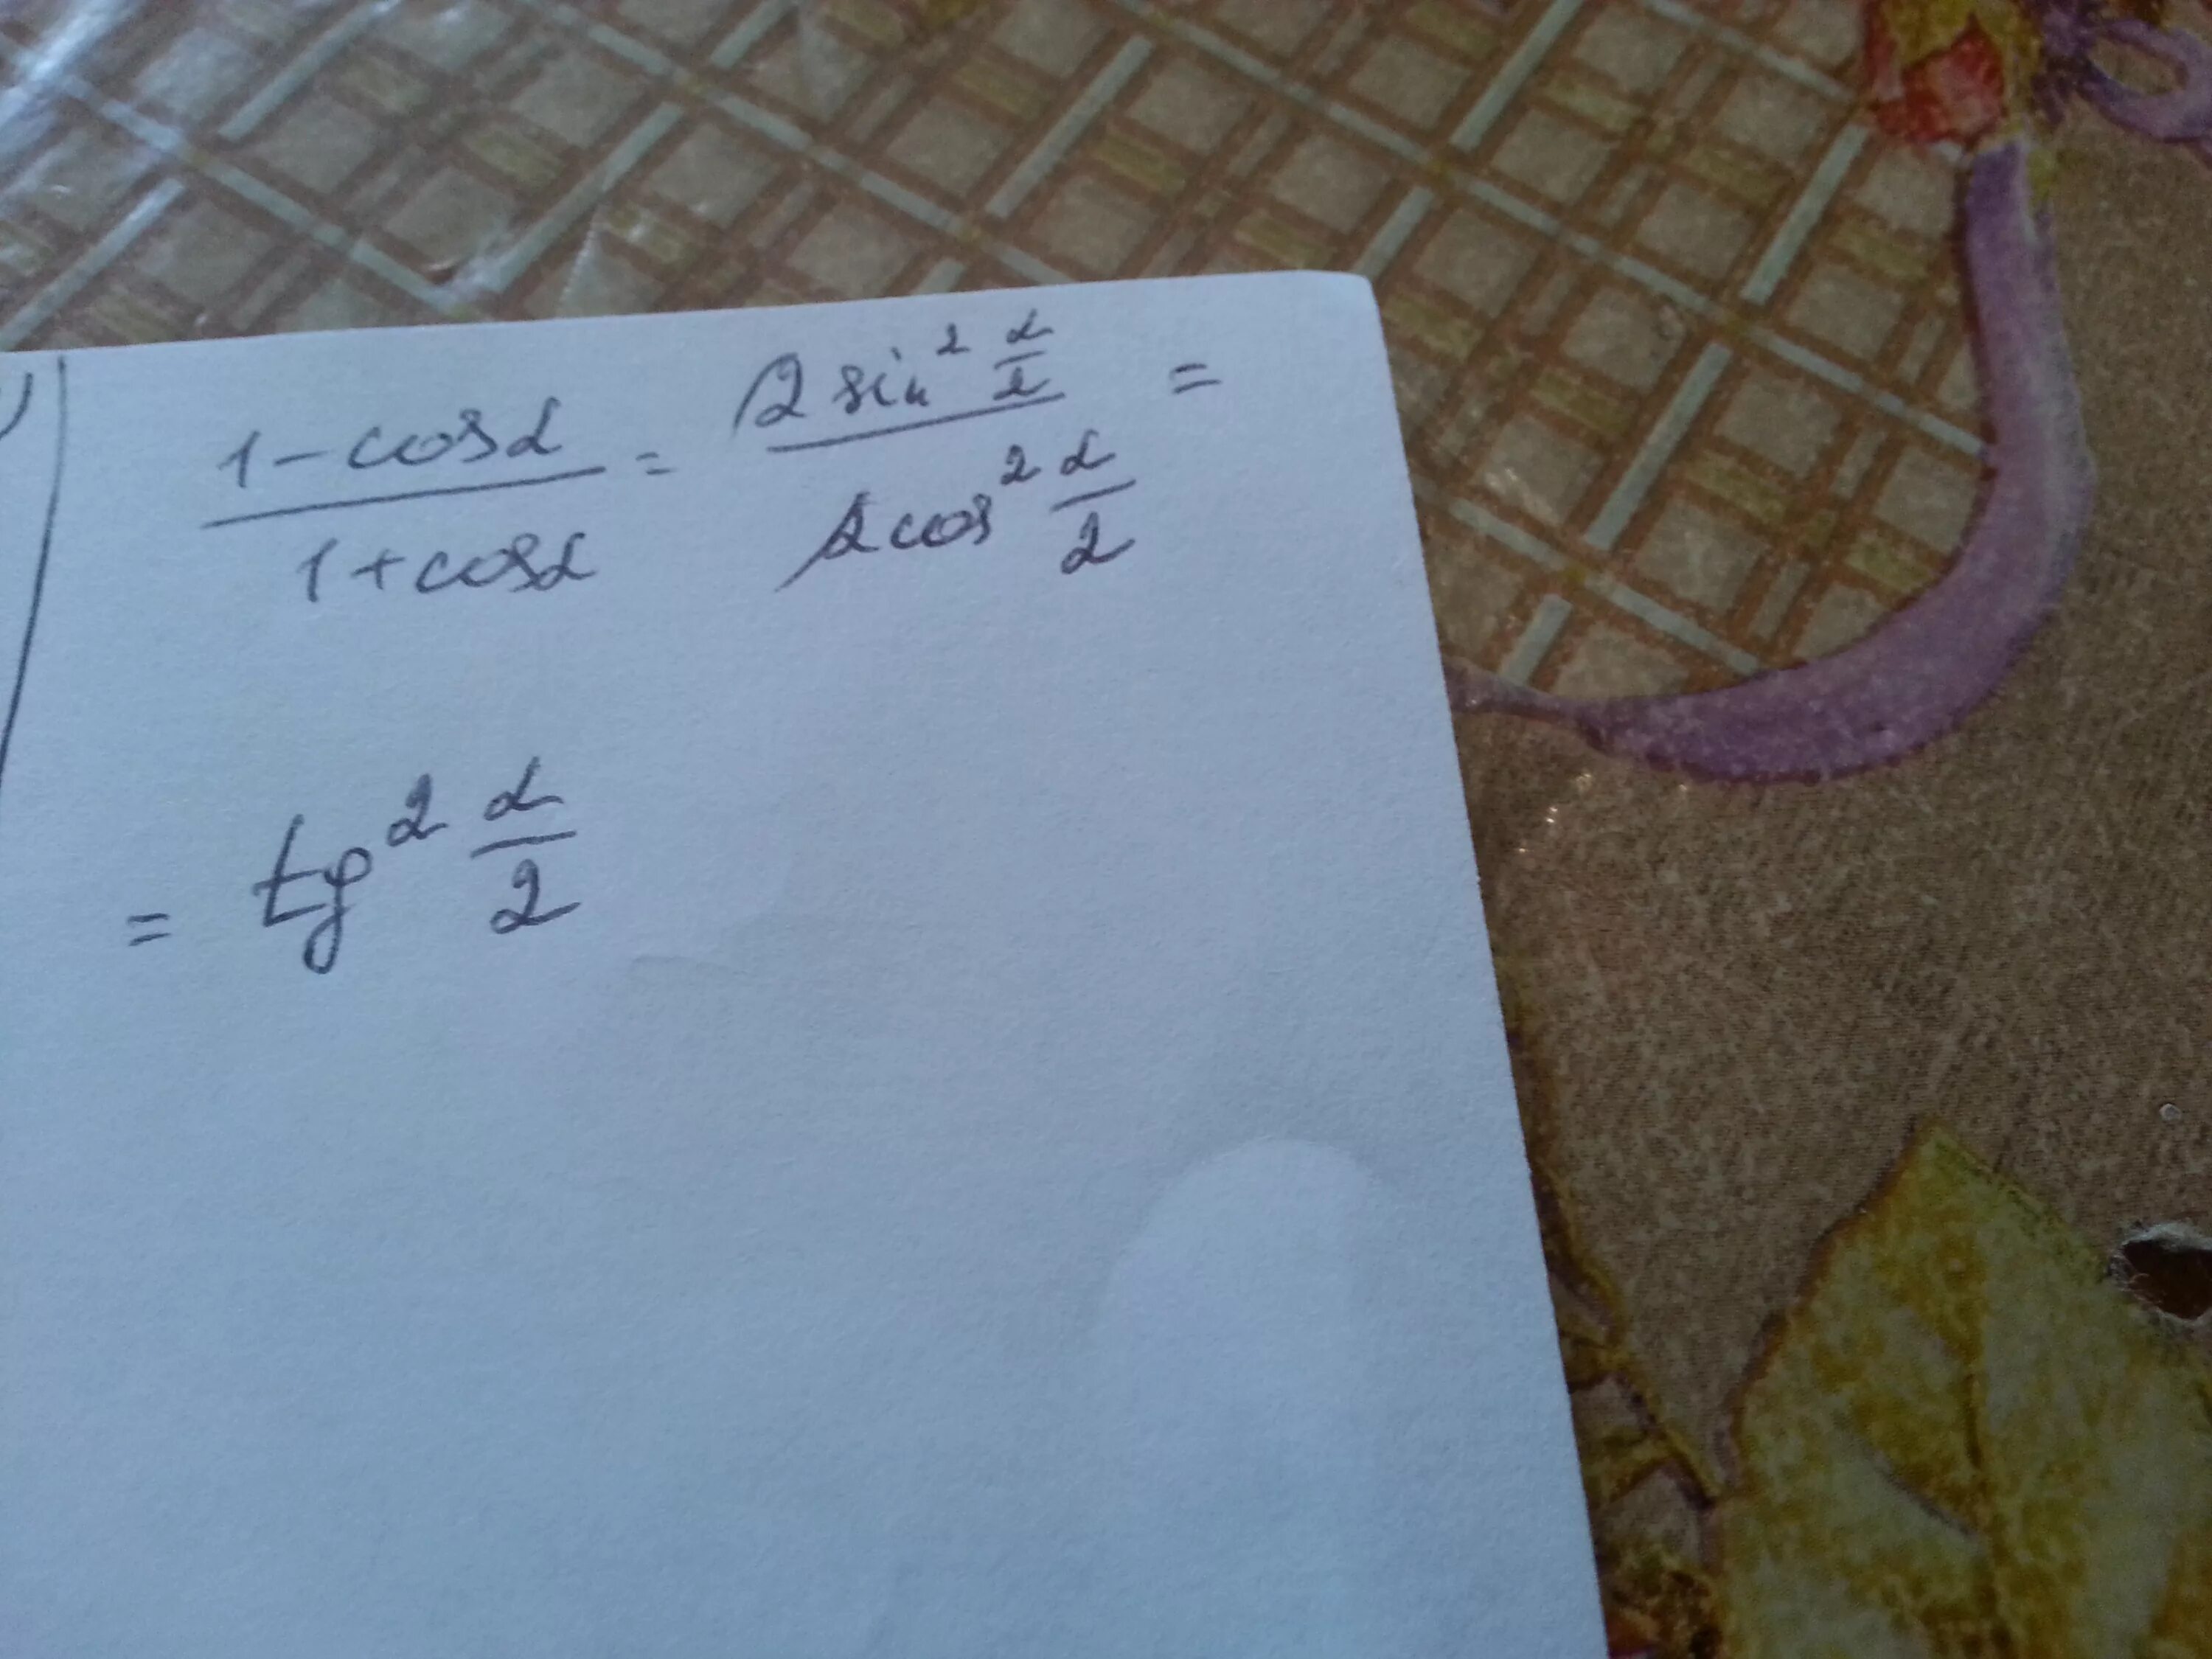 1-cosα / 1+cosα = 2 sin² α/2 / 2 cos² α/2 =
= tg² α/2